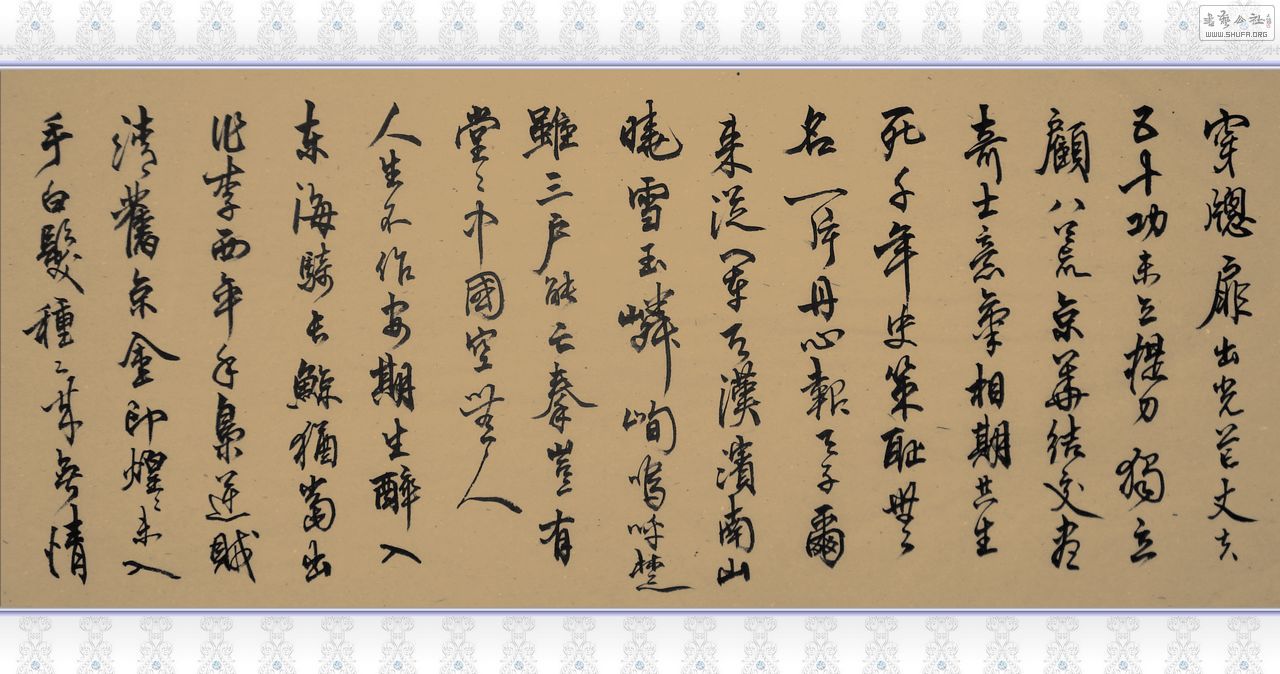 穿牕扉出光芒丈夫
五十功未立提刀獨立
顧八荒京華結交盡
奇士意氣相期共生
死千年史策恥無
名一片丹心報天子爾
来從軍天漢濱南山
曉雪玉嶙峋嗚呼楚
雖三戶能亡秦豈有
堂々中國空無人
人生不作安期生醉入
东海騎長鯨猶當出
作李西平手梟逆賊
清舊京金印煌々未入
手白髮種々来無情
书艺公社
WWW.SHUFA.ORG